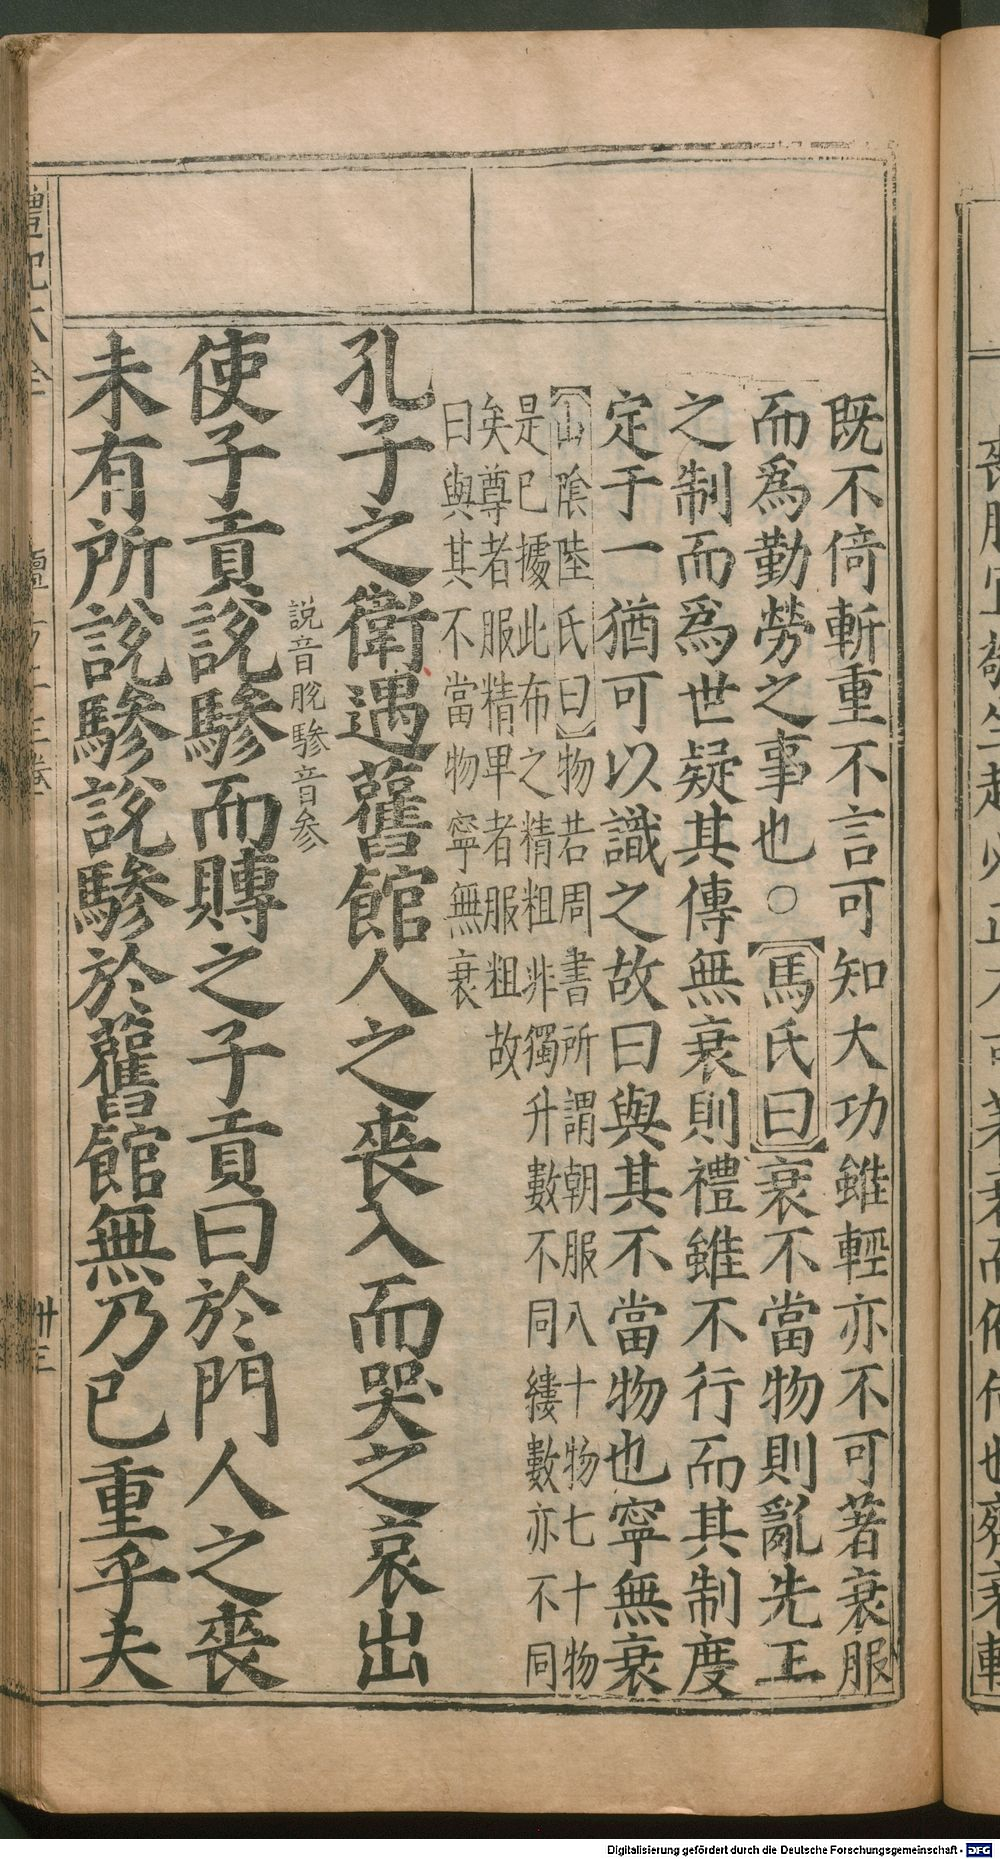 既不倚斬重不言可知大功雖輕亦不可著衰服
而爲勤勞之事也○【馬氏曰】衰不當物則亂先王
之制而爲世疑其傳無衰則禮雖不行而其制度
定于一猶可以識之故曰與其不當物也寧無衰
【山陰陸氏曰】物若周書所謂朝服八十物七十物
是已據此布之精粗非獨升數不同縷數亦不同
矣尊者服精卑者服粗故
曰與其不當物寧無衰
孔子之衛遇舊館人之喪入而哭之哀出
說音脫驂音參
使子貢說驂而賻之子貢曰於門人之喪
未有所說驂說驂於舊館無乃已重乎夫
禮記大全
卅三
Digitalisierung gefördert durch die Deutsche Forschungsgemeinschaft - DFG